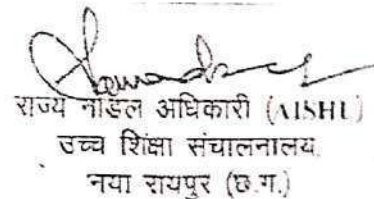 राज्य नोडल अधिकारी (AISHE)
उच्च शिक्षा संचालनालय
नया रायपुर (छ.ग.)